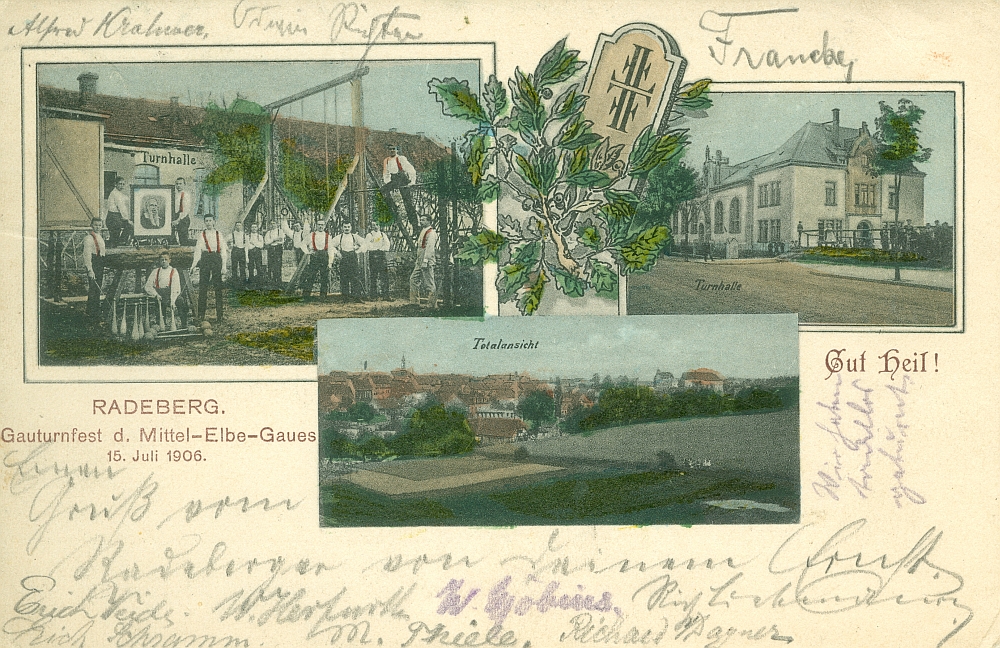 Alfred Krahmer,
Richter
Francke,
Turnhalle
Turnhalle
Totalansicht
Gut Heil!
RADEBERG.
Gauturnfest d. Mittel-Elbe-Gaues
15. Juli 1906.
Einen
Gruß vom
Radeberger von Deinem Ernst.
Wir
Erich W. Herfurth W. Göbius.
Erich Schramm. M. Thiele, Richard Wagner